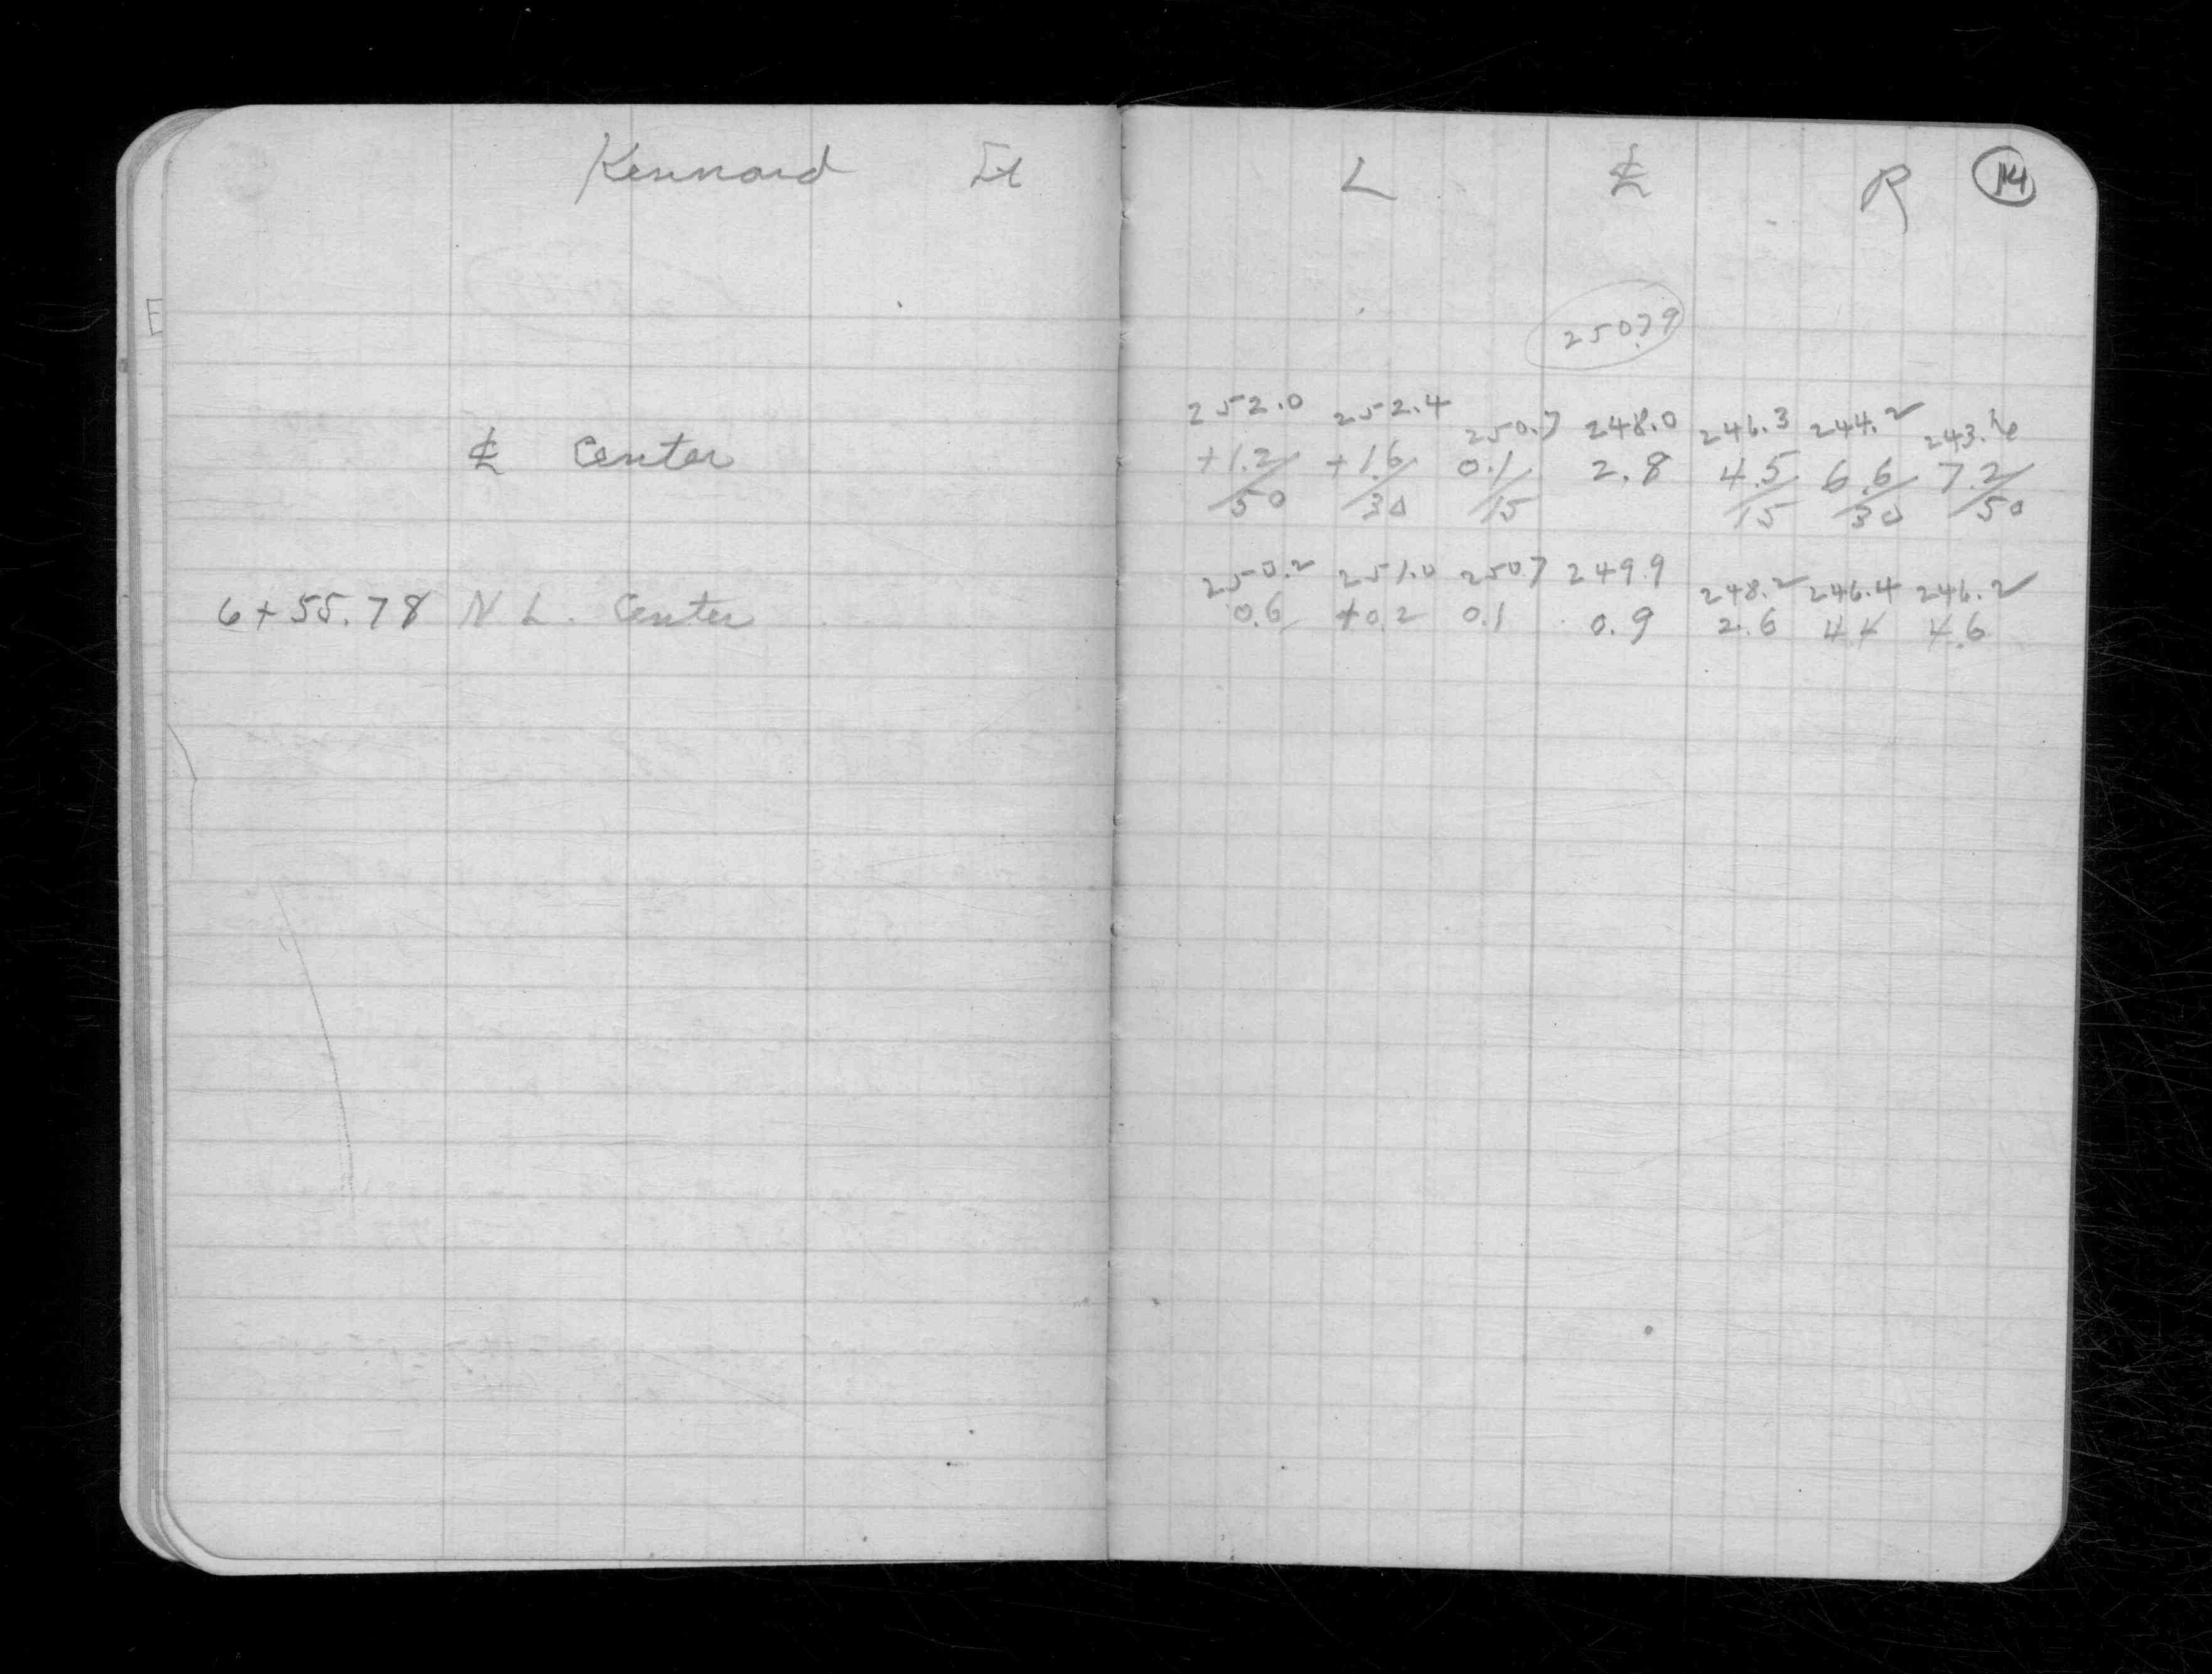 Kennard St
℄ Center
6+55.78 N L. Center
L ℄ R 14
250.79
252.0 252.4 250.7 248.0 246.3 244.2 243.6
+1.2/50 +1.6/30 0.1/15 2.8 4.5/15 6.6/30 7.2/50
250.2 251.0 250.7 249.9 248.2 246.4 246.2
0.6 +0.2 0.1 0.9 2.6 4.4 4.6